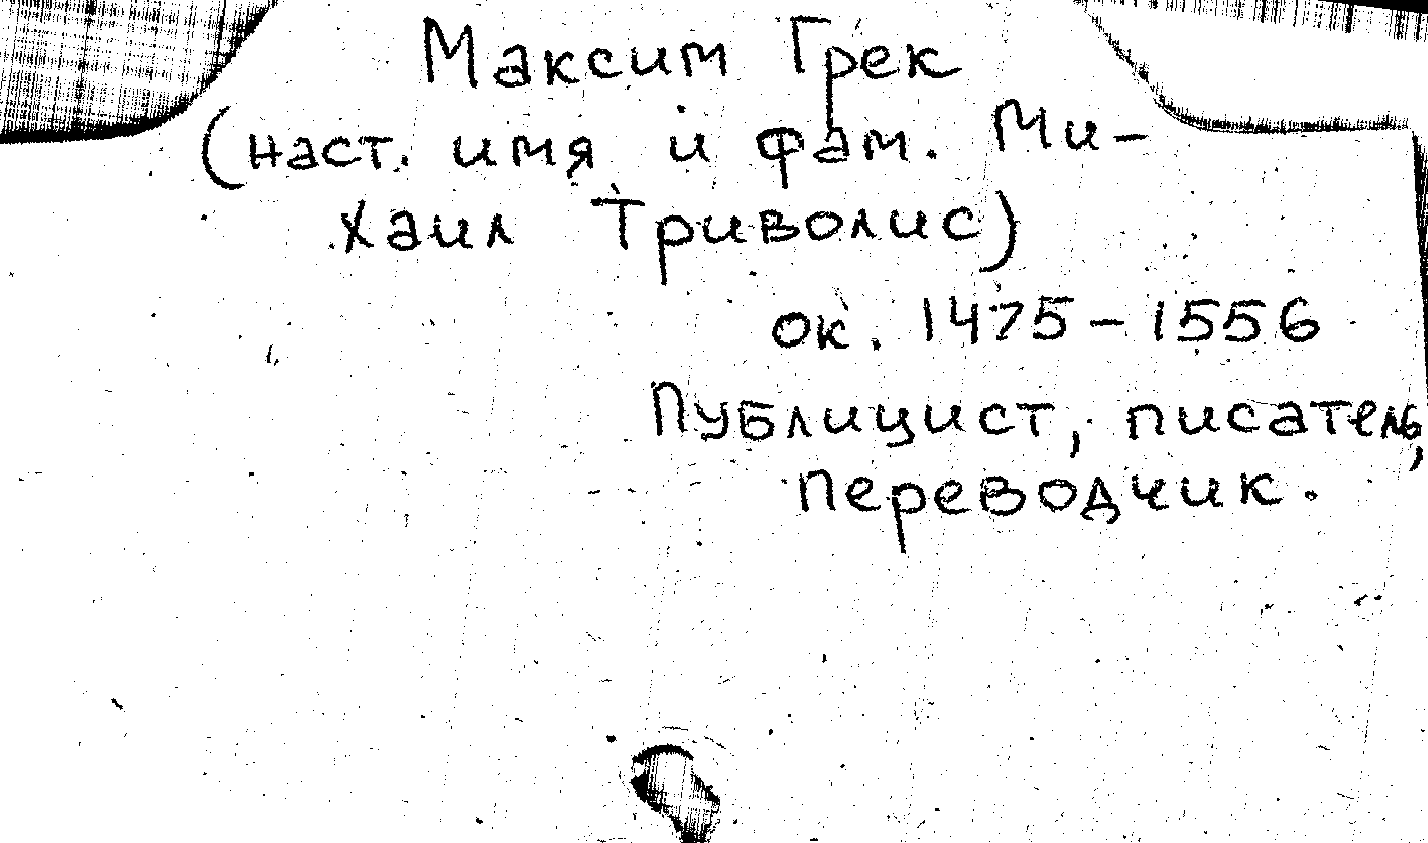 Максим Грек
(наст. имя и фам. Ми-
хаил Триволис)
ок. 1475-1556
Публицист, писатель,
переводчик.